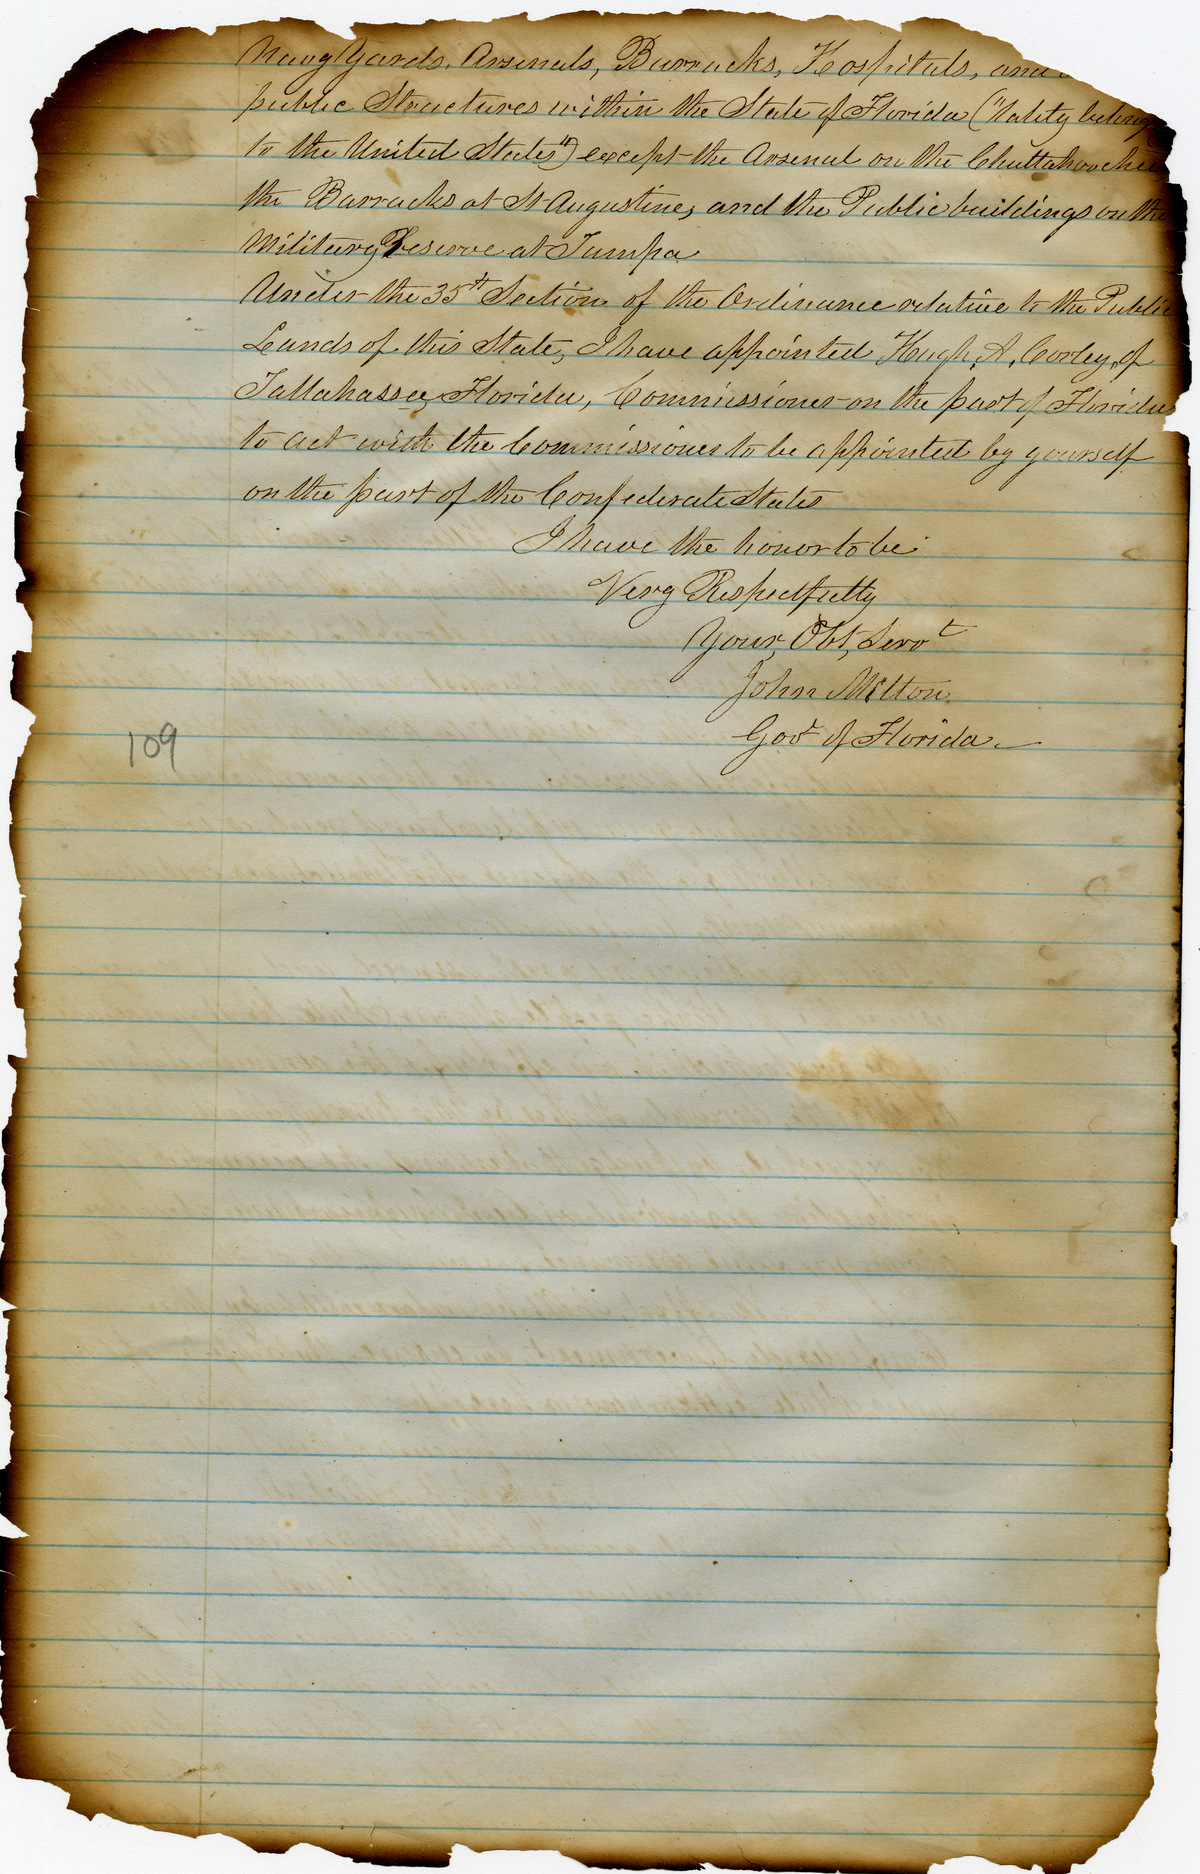 Navy Yards, Arsenals, Barracks, Hospitals, and
public Structures within the State of Florida ("lately belong
to the United States") except the Arsenal on the Chattahoochee
the Barracks at St Augustine, and the Public buildings on the
Military Reserve at Tampa
Under the 35th Section of the Ordinance relative to the Public
Lands of this State, I have appointed Hugh, A, Corley, of
Tallahassee, Florida, Commissioner on the part of Florida
to act with the Commissioner to be appointed by yourself
on the part of the Confederate States
I have the honor to be
Very Respectfully
Your, Obt, Servt
John Milton
Govr of Florida
109